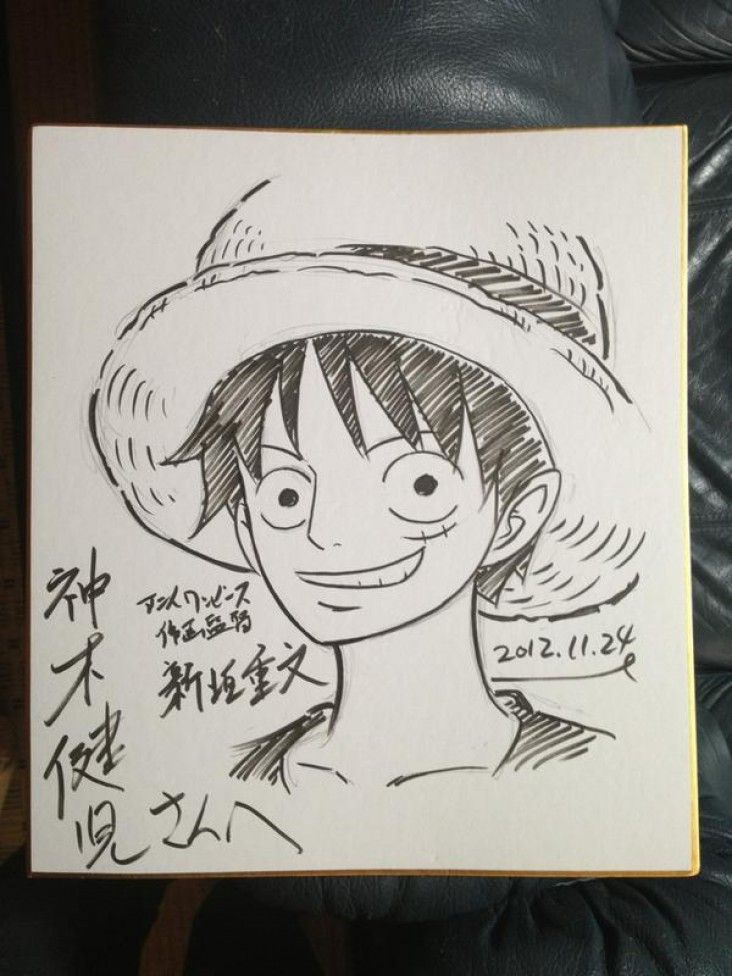 神木健児さんへ
アニメワンピース
作画監督
新垣重文
2012.11.24